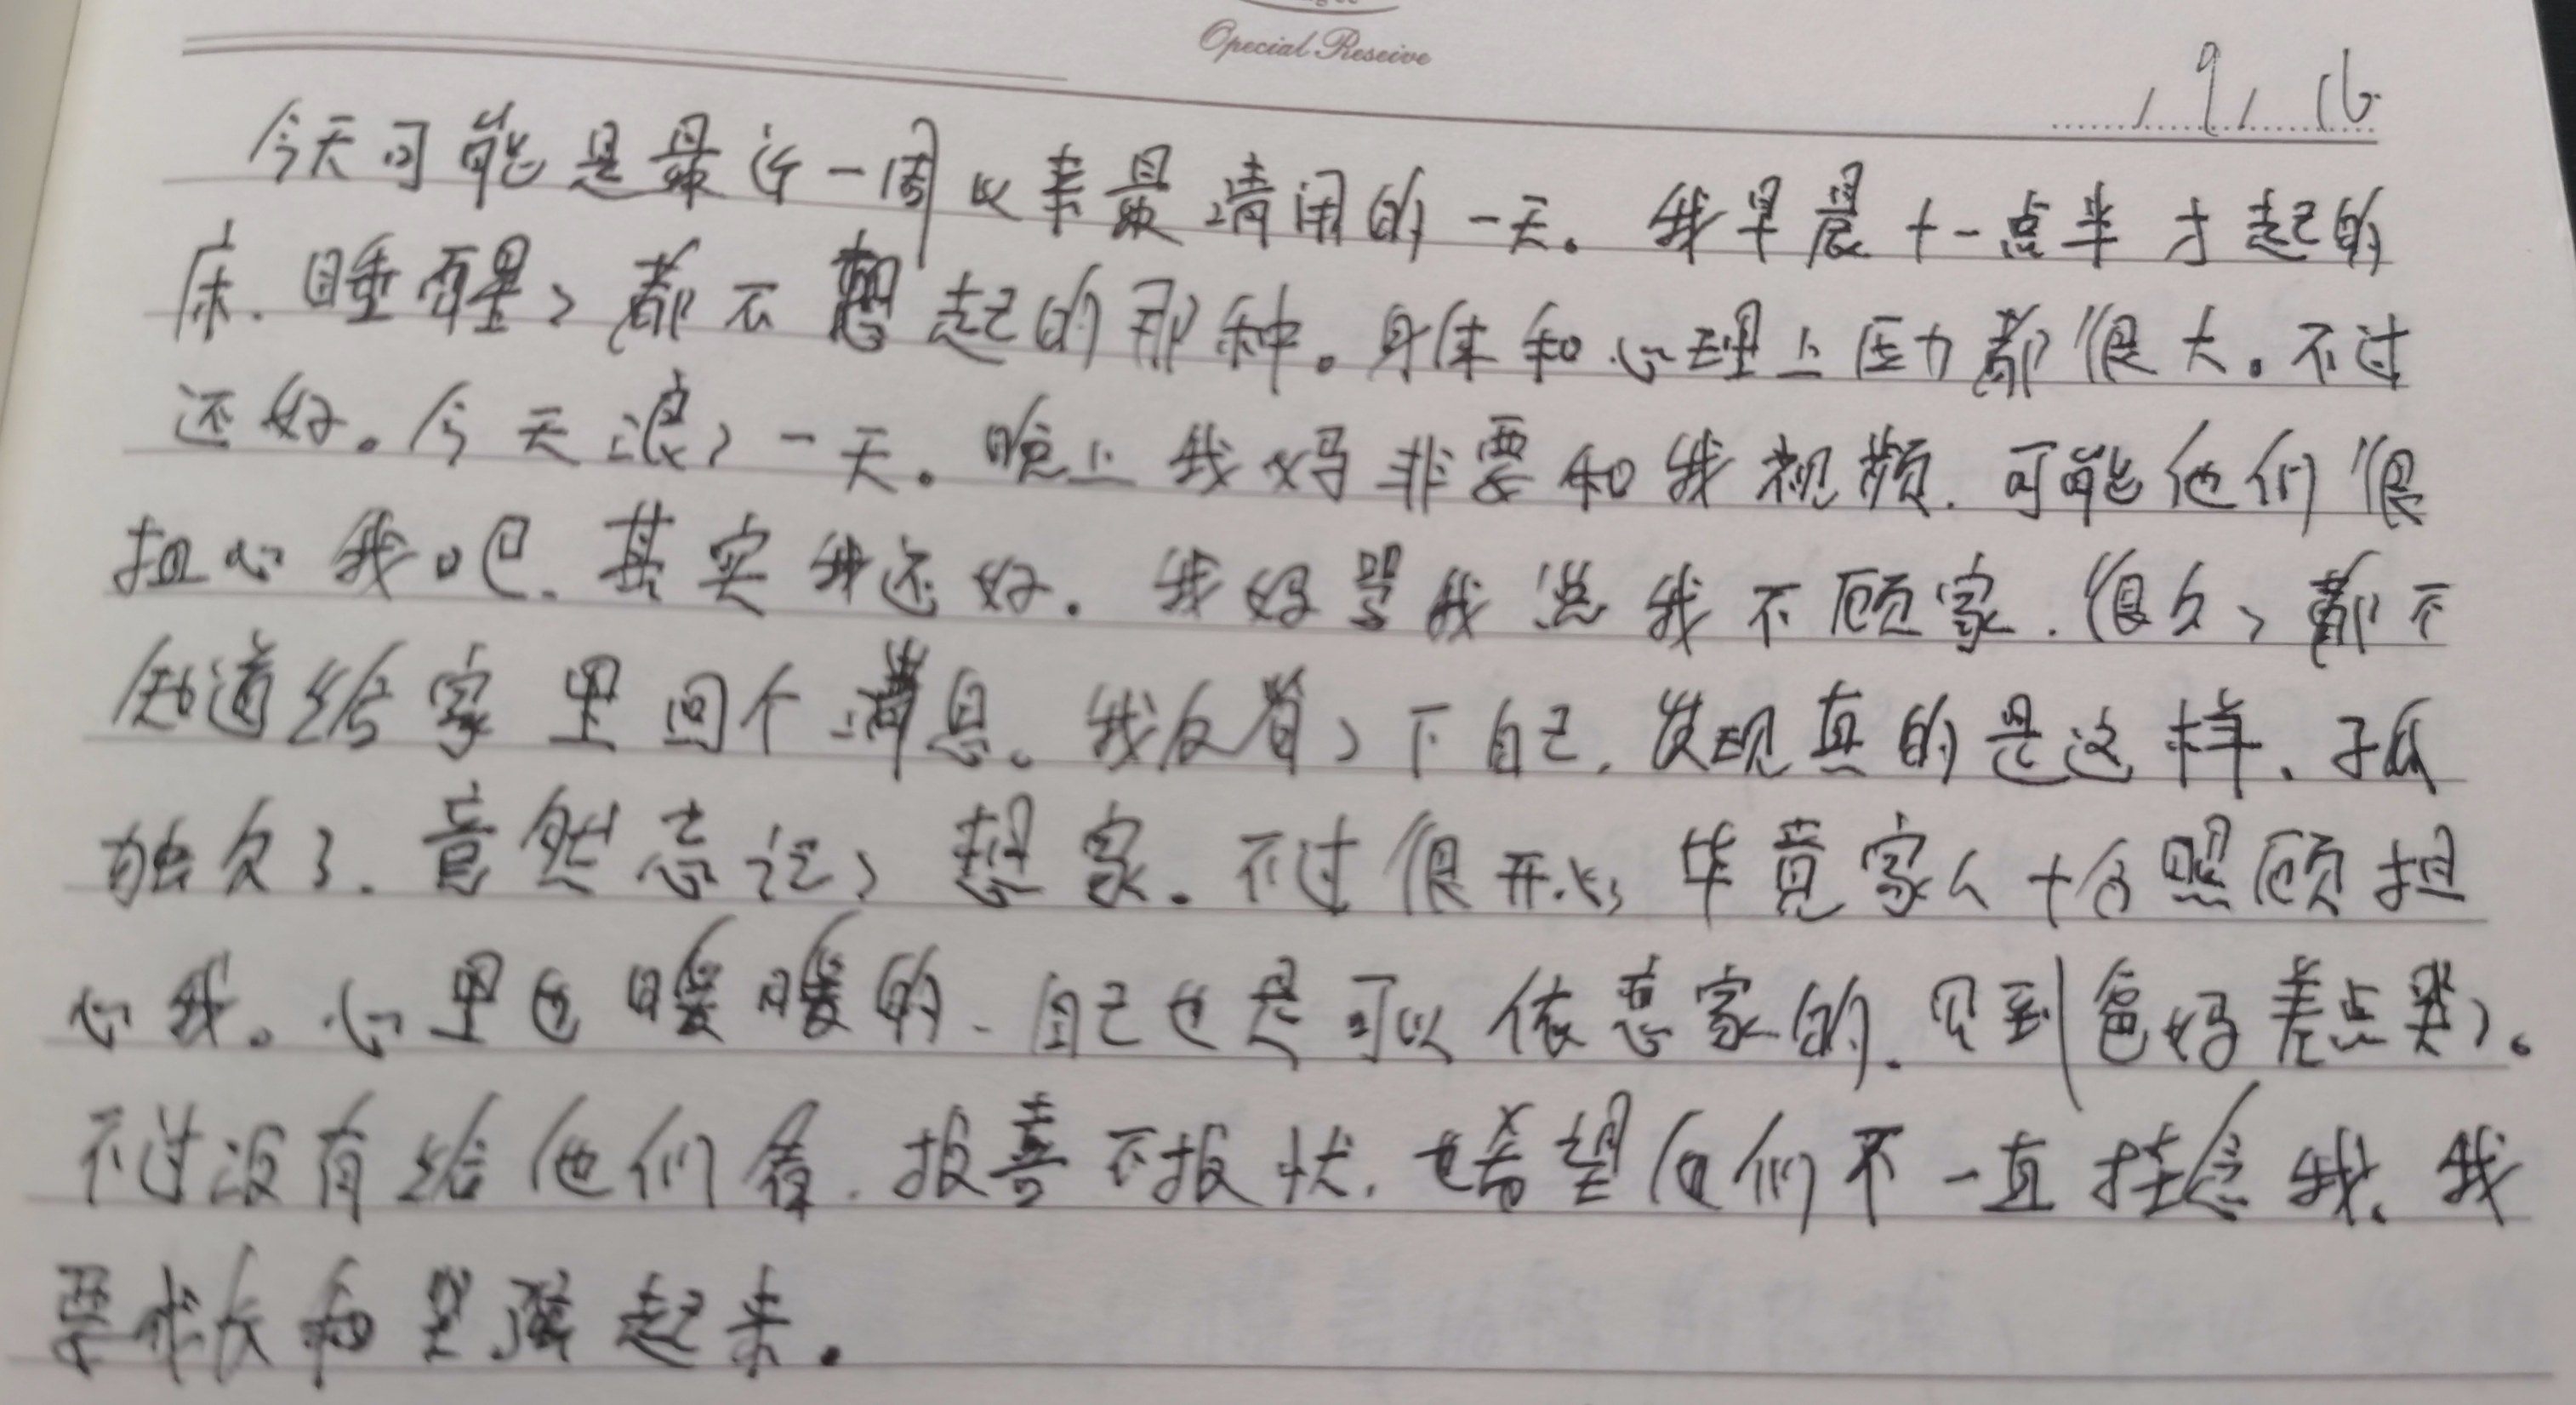 Special Reserve
9 16
今天可能是最近一周以来最清闲的一天。我早晨十一点半才起的
床.睡醒了都不想起的那种。身体和心理上压力都很大。不过
还好。今天浪了一天。晚上我妈非要和我视频.可能他们很
担心我吧.其实我还好.我妈骂我说我不顾家.很久了都不
知道给家里回个消息。我反省了下自己.发现真的是这样.孤
独久了.竟然忘记了想家。不过很开心 毕竟家人十分照顾担
心我。心里也暖暖的.自己也是可以依恋家的.见到爸妈差点哭了。
不过没有给他们看.报喜不报忧.也希望他们不一直挂念我.我
要成长和坚强起来.